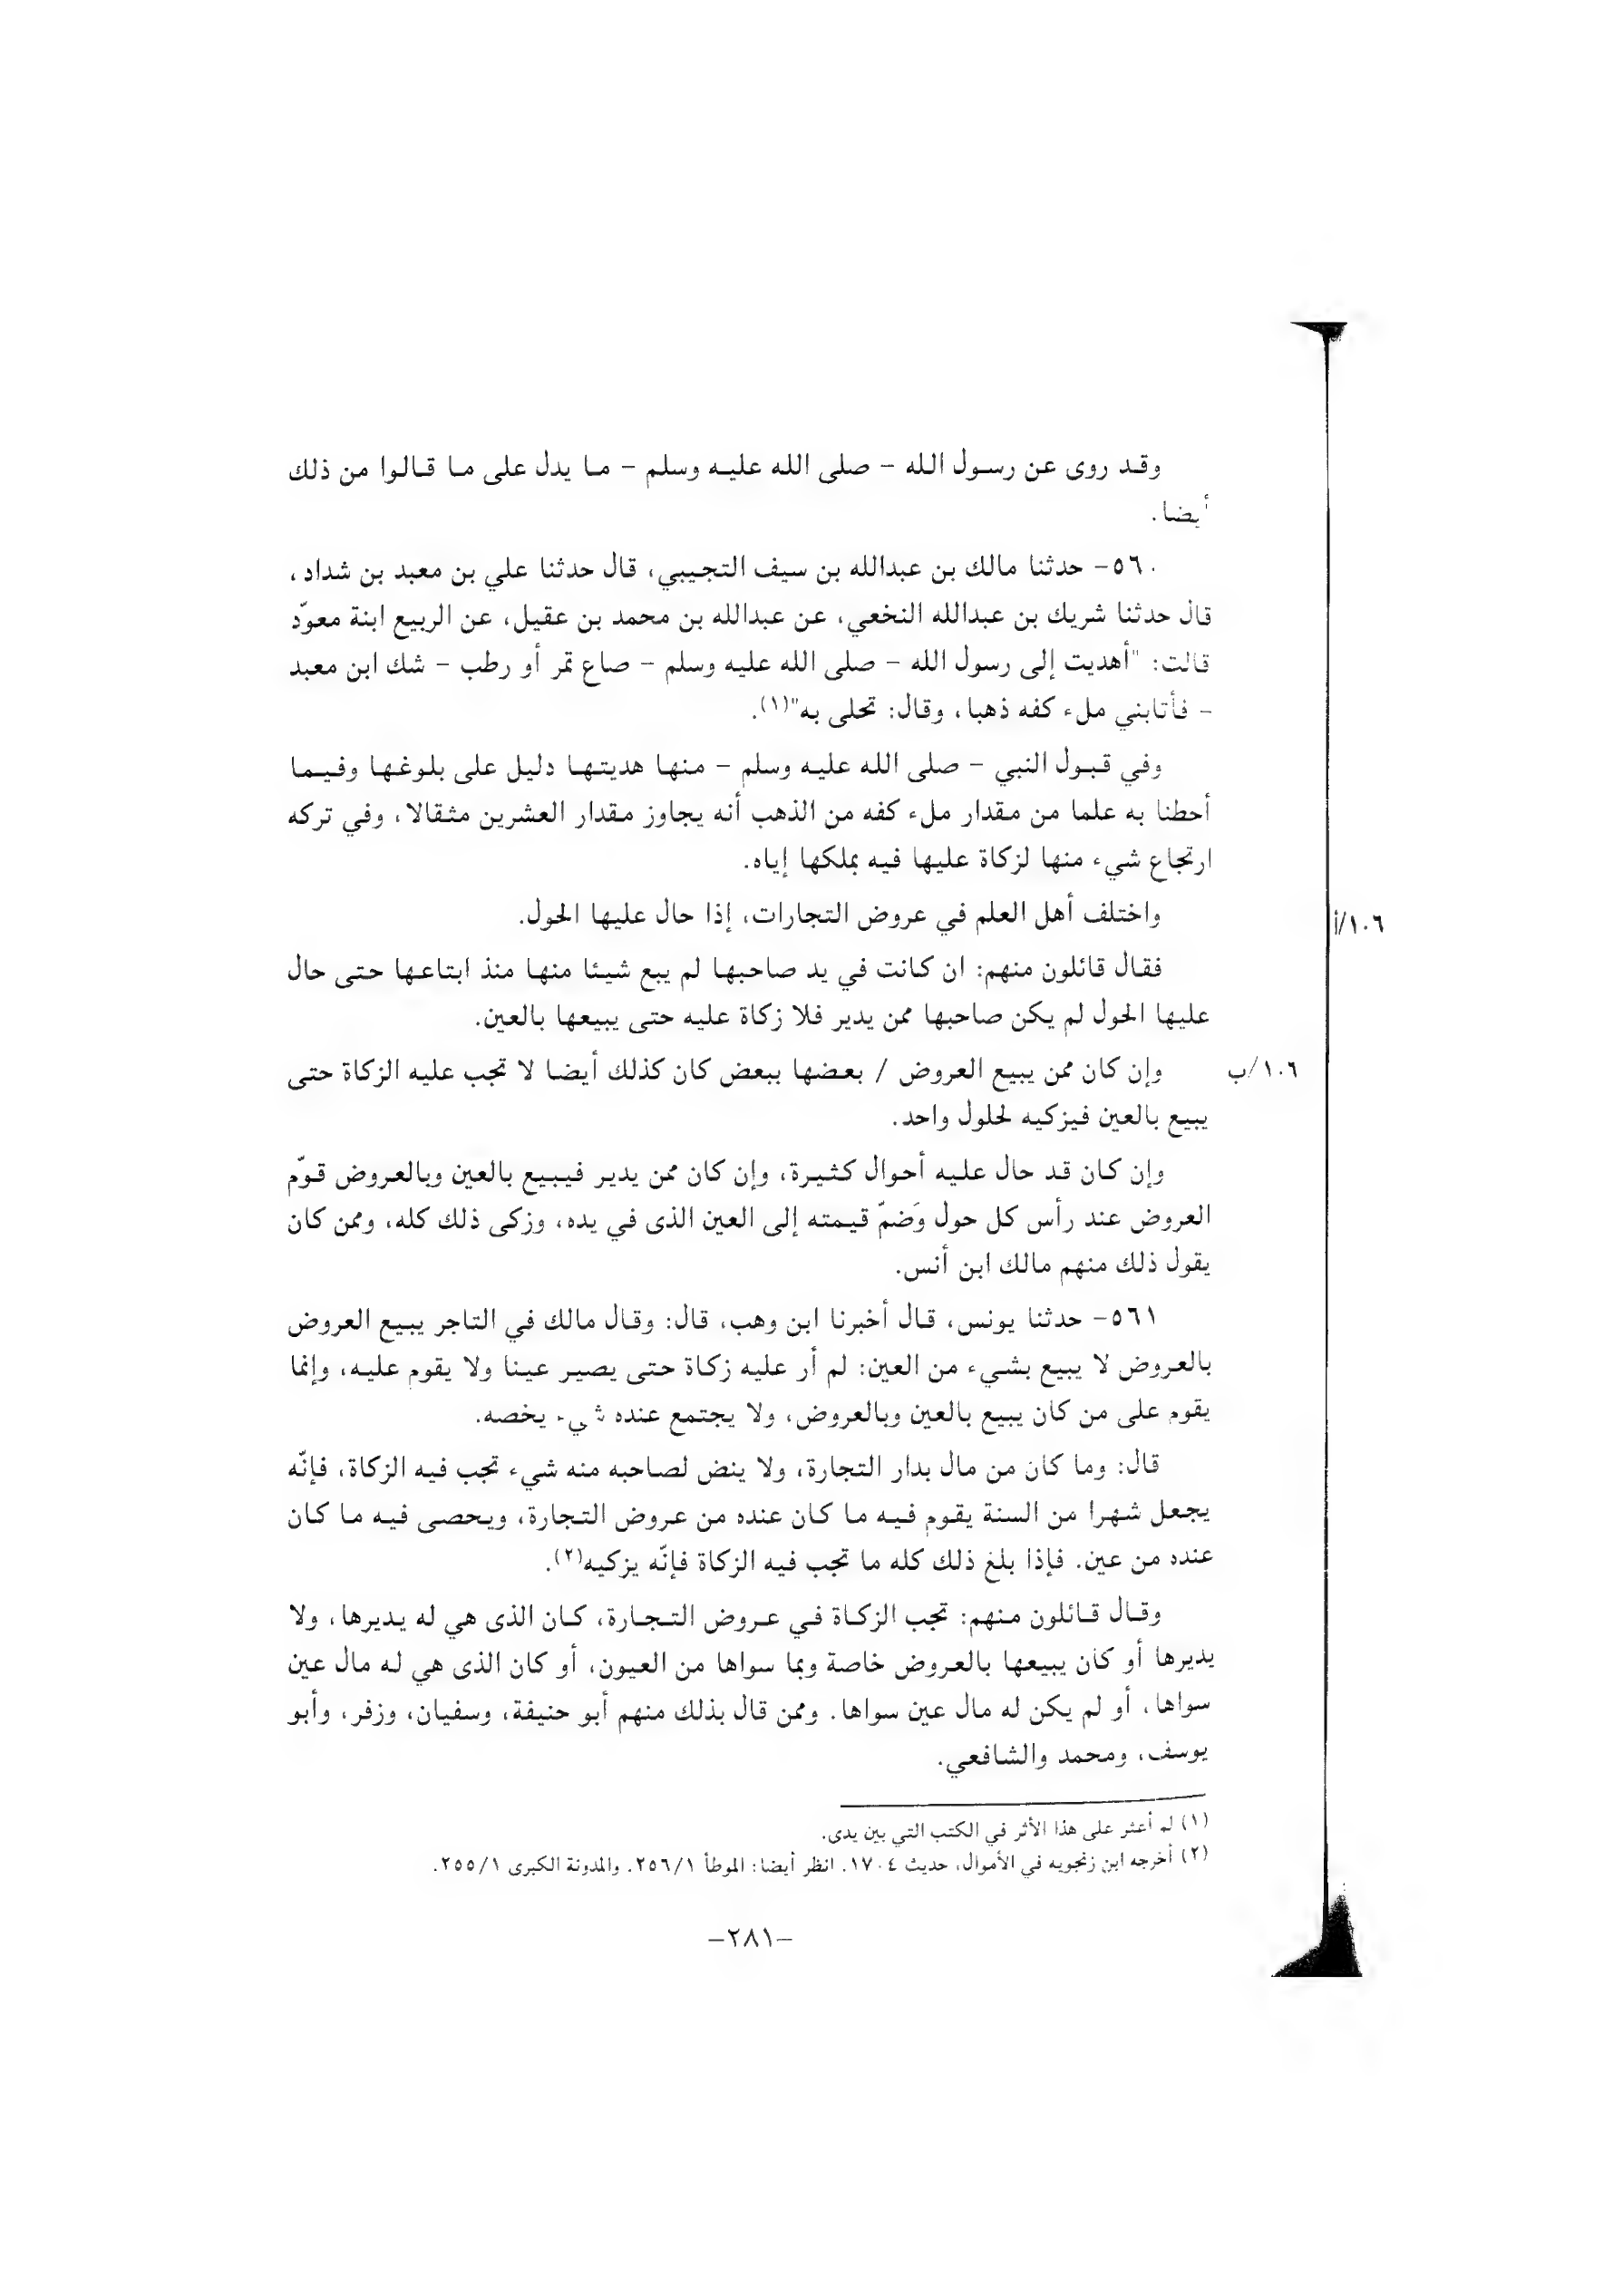 وقد روى عن رسول الله - صلى الله عليه وسلم - ما يدل على ما قالوا من ذلك
أيضا.
٥٦٠- حدثنا مالك بن عبدالله بن سيف التجيبي، قال حدثنا علي بن معبد بن شداد،
قال حدثنا شريك بن عبدالله النخعي، عن عبدالله بن محمد بن عقيل، عن الربيع ابنة معوّد
قالت: "أهديت إلى رسول الله - صلى الله عليه وسلم - صاع تمر أو رطب - شك ابن معبد
- فأتابني ملء كفه ذهبا، وقال: تحلى به"(١).
وفي قبول النبي - صلى الله عليه وسلم - منها هديتها دليل على بلوغها وفيما
أحطنا به علما من مقدار ملء كفه من الذهب أنه يجاوز مقدار العشرين مثقالا، وفي تركه
ارتجاع شيء منها لزكاة عليها فيه بملكها إياه.
واختلف أهل العلم في عروض التجارات، إذا حال عليها الحول.
١٠٦/أ
فقال قائلون منهم: ان كانت في يد صاحبها لم يبع شيئا منها منذ ابتاعها حتى حال
عليها الحول لم يكن صاحبها ممن يدير فلا زكاة عليه حتى يبيعها بالعين.
وإن كان ممن يبيع العروض / بعضها ببعض كان كذلك أيضا لا تجب عليه الزكاة حتى
١٠٦/ب
يبيع بالعين فيزكيه لحلول واحد.
وإن كان قد حال عليه أحوال كثيرة، وإن كان ممن يدير فيبيع بالعين وبالعروض قوّم
العروض عند رأس كل حول وَضمّ قيمته إلى العين الذى في يده، وزكى ذلك كله، وممن كان
يقول ذلك منهم مالك ابن أنس.
٥٦١- حدثنا يونس، قال أخبرنا ابن وهب، قال: وقال مالك في التاجر يبيع العروض
بالعروض لا يبيع بشيء من العين: لم أر عليه زكاة حتى يصير عينا ولا يقوم عليه، وإنما
يقوم على من كان يبيع بالعين وبالعروض، ولا يجتمع عنده شيء يخصه.
قال: وما كان من مال بدار التجارة، ولا ينض لصاحبه منه شيء تجب فيه الزكاة، فإنّه
يجعل شهرا من السنة يقوم فيه ما كان عنده من عروض التجارة، ويحصى فيه ما كان
عنده من عين. فإذا بلغ ذلك كله ما تجب فيه الزكاة فإنّه يزكيه(٢).
وقال قائلون منهم: تجب الزكاة في عروض التجارة، كان الذى هي له يديرها، ولا
يديرها أو كان يبيعها بالعروض خاصة وبما سواها من العيون، أو كان الذى هي له مال عين
سواها، أو لم يكن له مال عين سواها. وممن قال بذلك منهم أبو حنيفة، وسفيان، وزفر، وأبو
يوسف، ومحمد والشافعي.
(١) لم أعثر على هذا الأثر في الكتب التي بين يدى.
(٢) أخرجه ابن زنجويه في الأموال، حديث ١٧٠٤. انظر أيضا: الموطأ ٢٥٦/١. والمدونة الكبرى ٢٥٥/١.
-٢٨١-